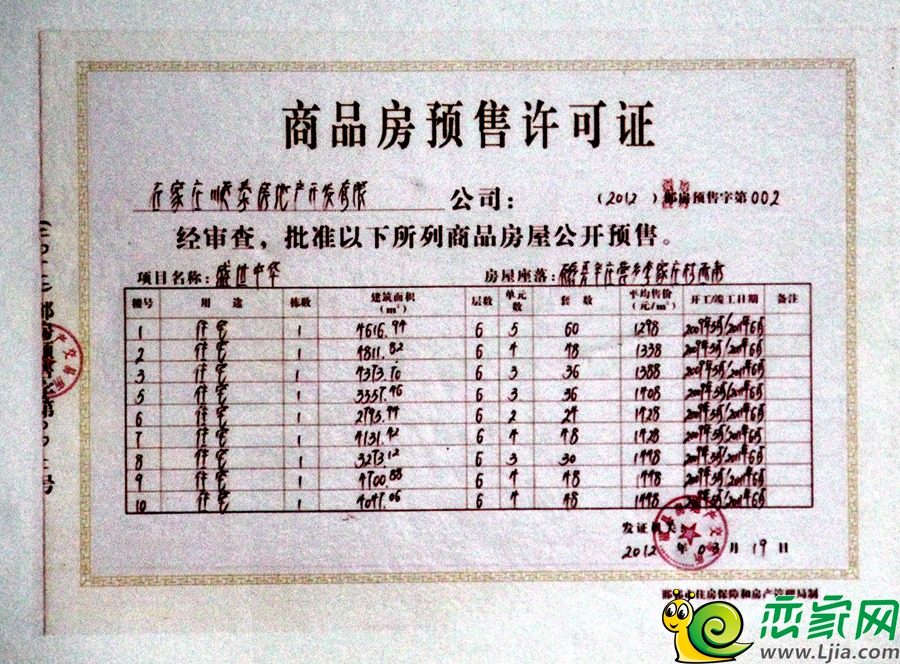 商品房预售许可证
石家庄顺泰房地产开发有限公司：
（2012）房预售字第002
经审查，批准以下所列商品房屋公开预售。
项目名称：盛世中华 房屋座落：
幢号 用途 栋数 建筑面积（m²） 层数 单元数 套数 平均售价（元/m²） 开工/竣工日期 备注
1 住宅 1 4616.94 6 5 60 1298 2009年3月/2011年6月
2 住宅 1 4811.52 6 4 48 1338 2009年3月/2011年6月
3 住宅 1 4373.70 6 3 36 1388 2009年3月/2011年6月
5 住宅 1 3357.96 6 3 36 1408 2009年3月/2011年6月
6 住宅 1 6 2 24 1428 2009年3月/2011年6月
7 住宅 1 4131.42 6 4 48 1428 2009年3月/2011年6月
8 住宅 1 3273.12 6 3 30 1448 2009年3月/2011年6月
9 住宅 1 4700.88 6 4 48 1448 2009年3月/2011年6月
10 住宅 1 4047.06 6 4 48 1448 2009年3月/2011年6月
发证机关
2012年03月19日
住房保障和房产管理局制
恋家网
www.Ljia.com